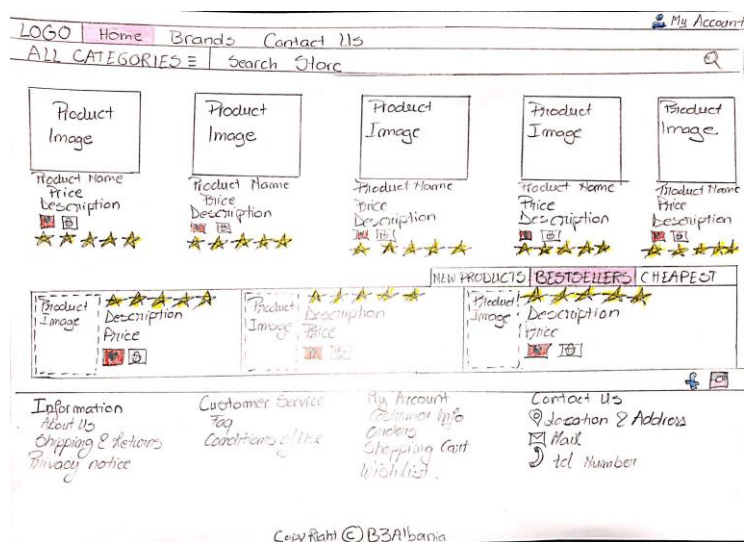 My Account
LOGO Home Brands Contact Us
ALL CATEGORIES Search Store
Product Image
Product Image
Product Image
Product Image
Product Image
Product Name
Price
Description
Product Name
Price
Description
Product Name
Price
Description
Product Name
Price
Description
Product Name
Price
Description
NEW PRODUCTS BESTSELLERS CHEAPEST
Product Image
Description
Price
Product Image
Description
Price
Product Image
Description
Price
Information
About Us
Shipping & Returns
Privacy notice
Customer Service
Faq
Conditions of Use
My Account
Costumer Info
Orders
Shopping Cart
Wishlist.
Contact Us
Location & Address
Mail
tel Number
Copy Right © B3Albania